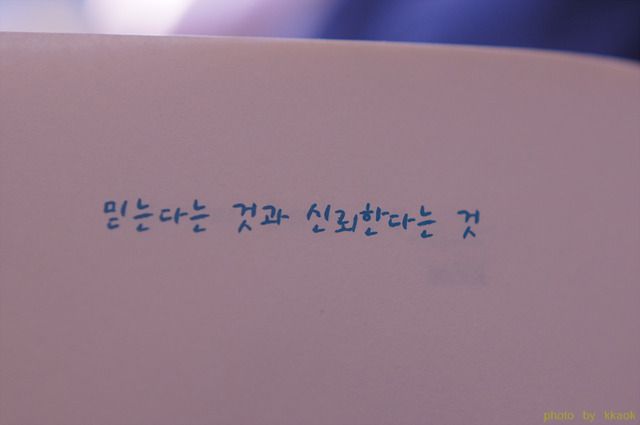 믿는다는 것과 신뢰한다는 것
photo by kkaok